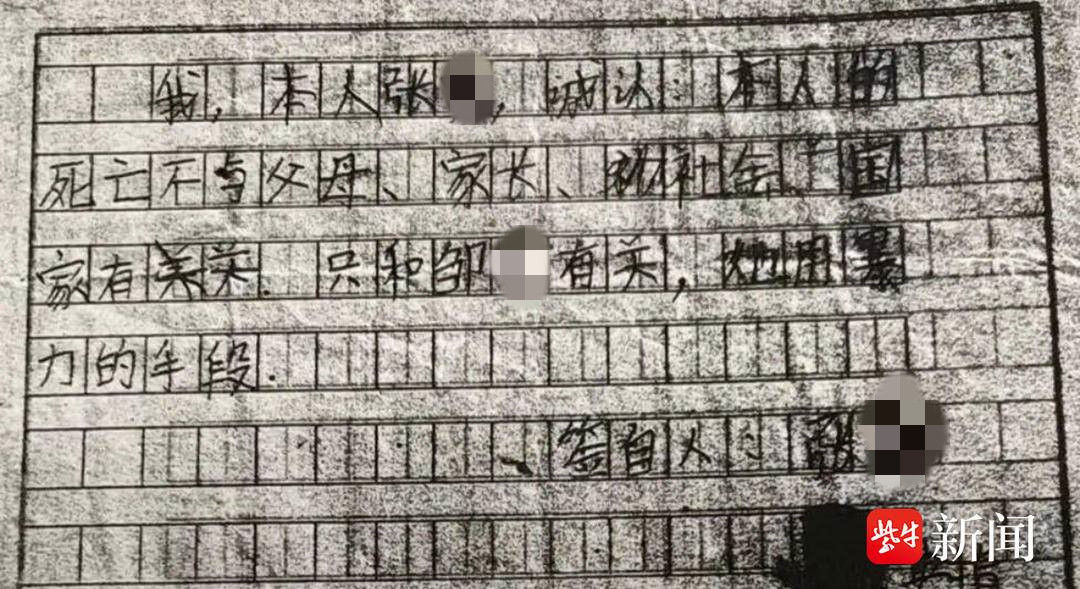 我，本人张，诚认：本人的
死亡不与父母、家长、和社会、国
家有关系. 只和邹有关，她用暴
力的手段.
签自人：张
紫牛新闻